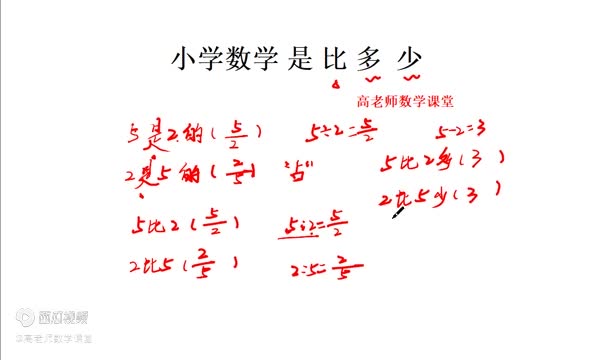 小学数学 是 比 多 少
高老师数学课堂
5是2的(5/2) 5÷2=5/2 5-2=3
2是5的(2/5) "占" 5比2多(3)
2比5少(3)
5比2(5/2) 5:2=5/2
2比5(2/5) 2:5=2/5
西瓜视频
@高老师数学课堂